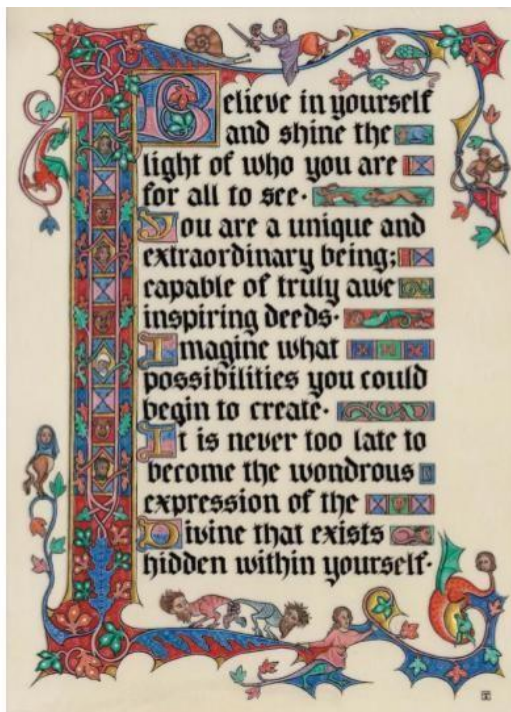 Believe in yourself
and shine the
light of who you are
for all to see·
You are a unique and
extraordinary being;
capable of truly awe
inspiring deeds·
Imagine what
possibilities you could
begin to create·
It is never too late to
become the wondrous
expression of the
Divine that exists
hidden within yourself·